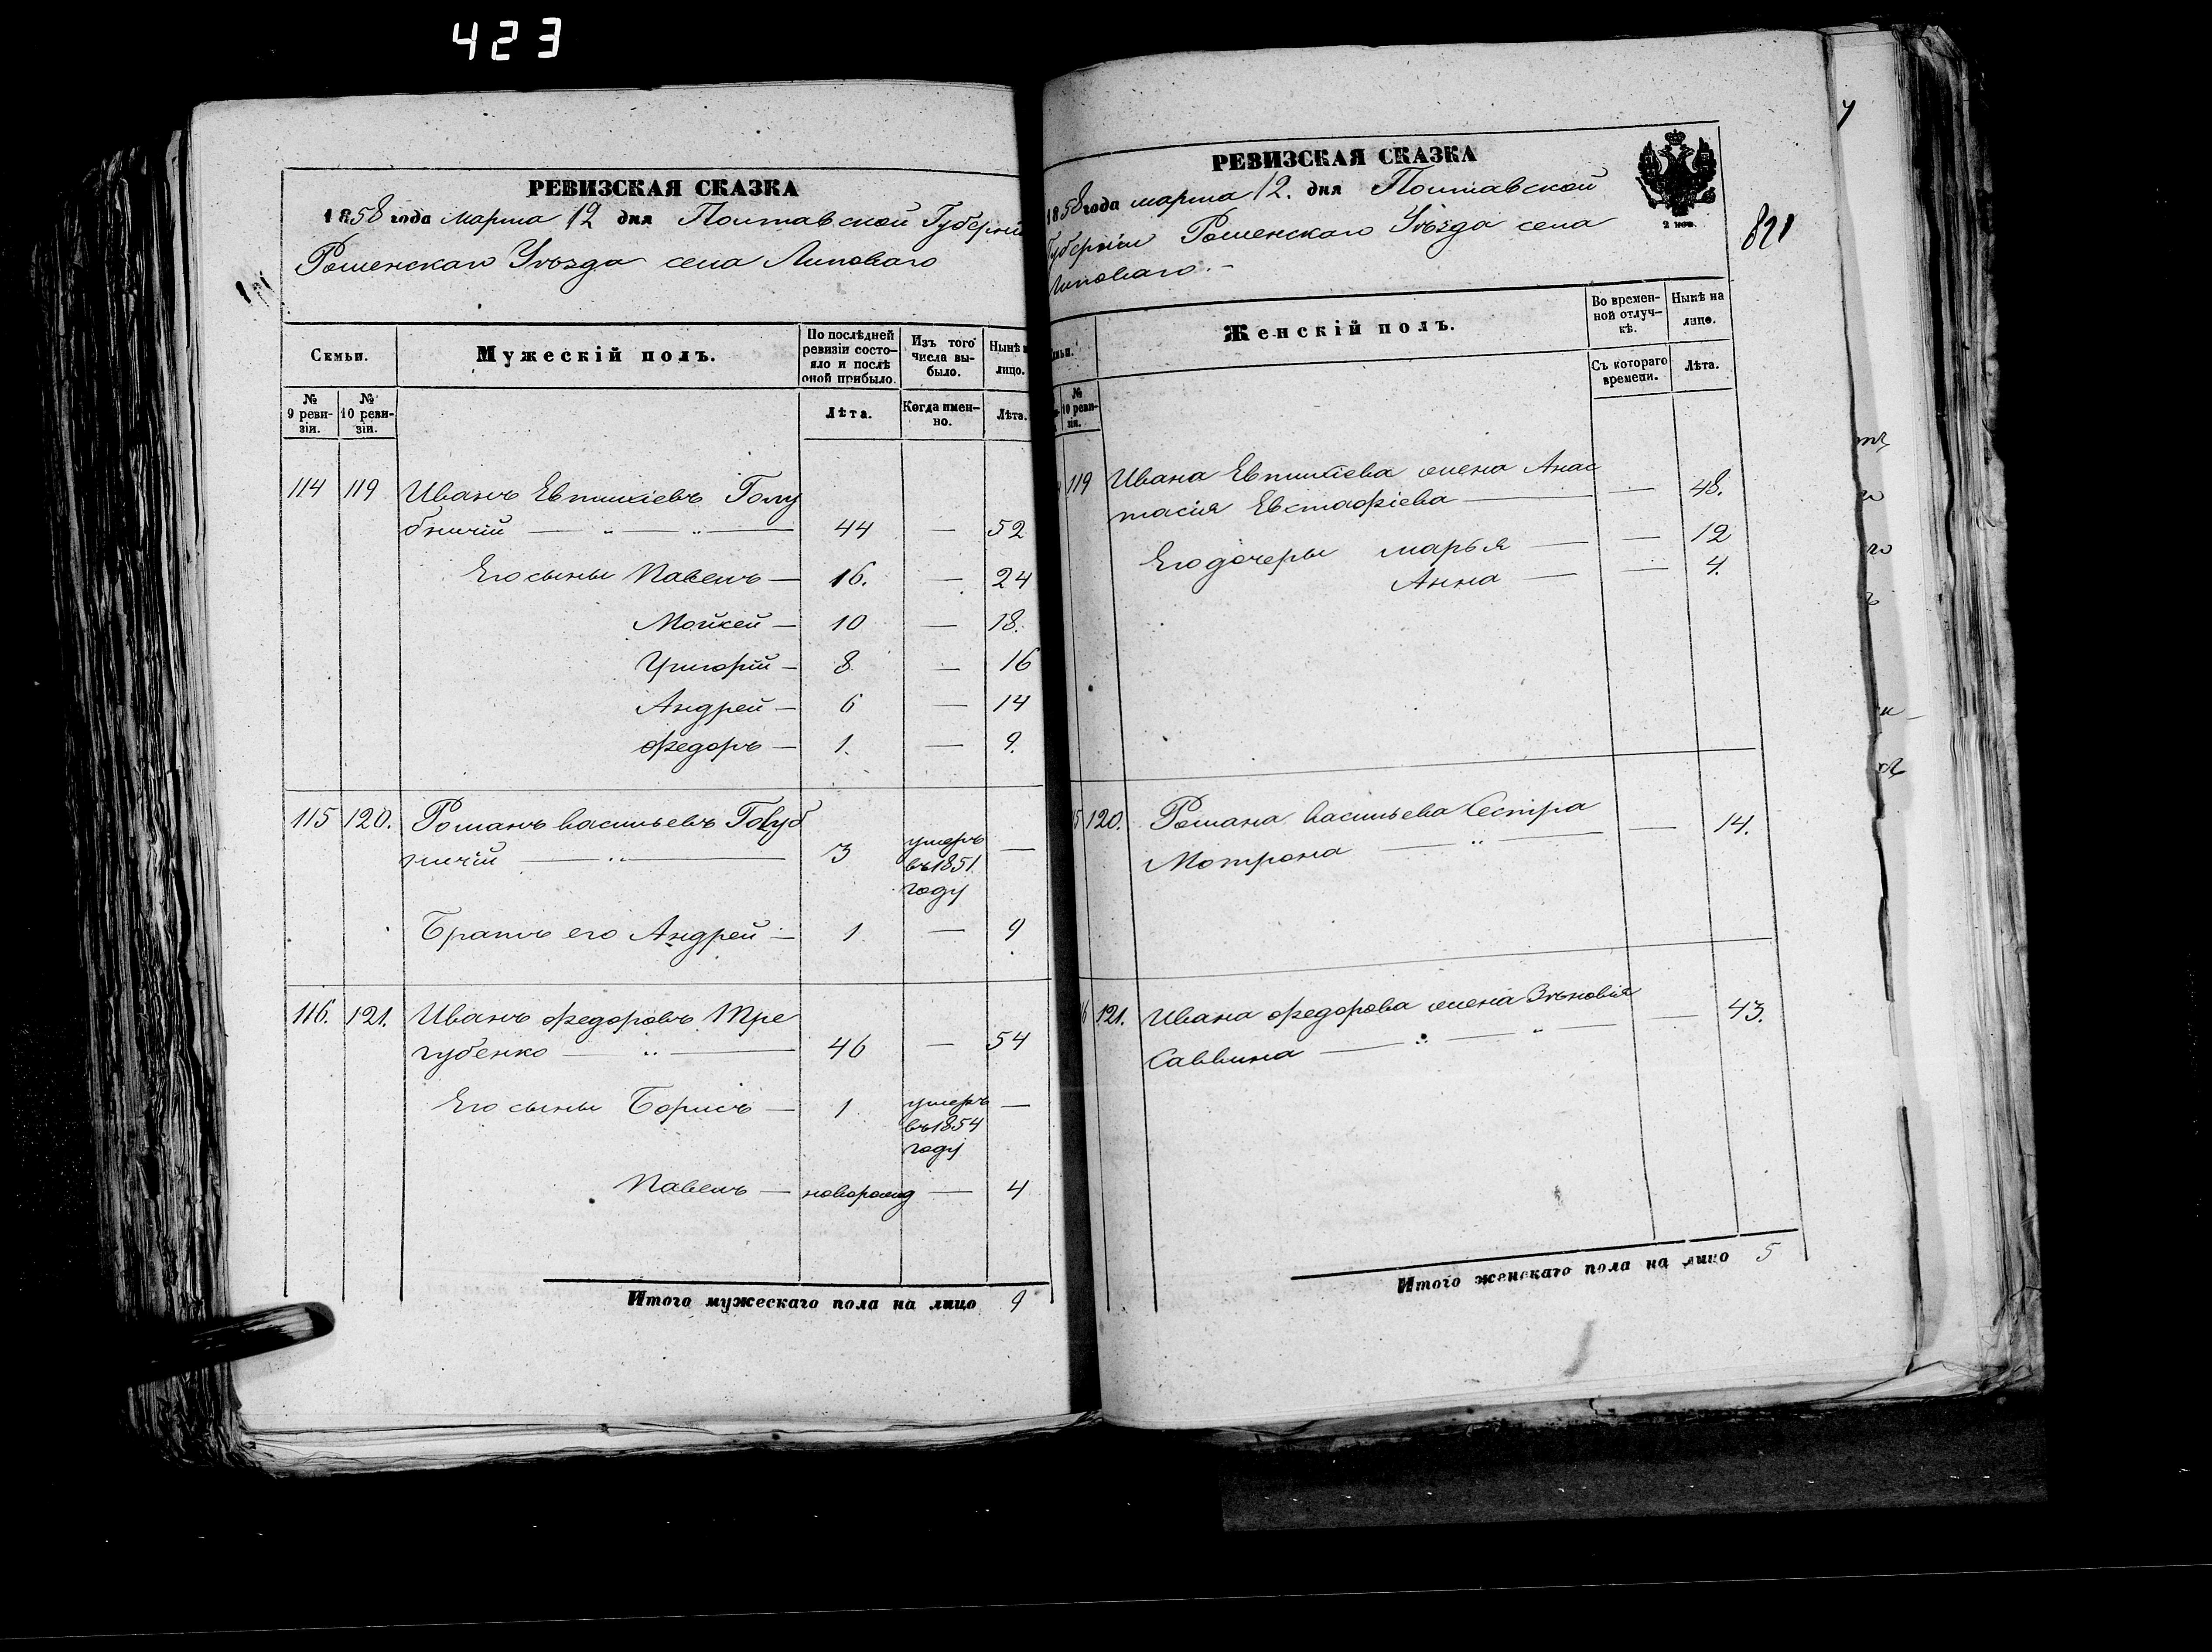 423
РЕВИЗСКАЯ СКАЗКА
1858 года марта 12 дня Полтавской Губерніи
Роменскаго Уѣзда села Липоваго
Семьи.
Мужескій полъ.
По послѣдней ревизіи состояло и послѣ оной прибыло.
Изъ того числа выбыло.
Нынѣ
лицо.
№ 9 ревизіи.
№ 10 ревизіи.
Лѣта.
Когда именно.
Лѣта.
114 119 Иванъ Евтихіевъ Голу
бничій — „ — „ — 44 — 52
Его сыны Павелъ — 16. — 24
Мойсей — 10 — 18.
Григорій — 8 — 16
Андрей — 6 — 14
Федоръ — 1. — 9.
115 120. Романъ Васильевъ Голуб
ничій — „ — 3 умеръ въ 1851 году —
Братъ его Андрей — 1 — 9
116. 121. Иванъ Федоровъ Тре
губенко — „ — 46 — 54
Его сыны Борисъ — 1 умеръ въ 1854 году —
Павелъ — новорожд — 4
Итого мужескаго пола на лицо 9
РЕВИЗСКАЯ СКАЗКА
1858 года марта 12. дня Полтавской
Губерніи Роменскаго Уѣзда села
Липоваго. –
2 коп.
821
Женскій полъ.
Во временной отлучкѣ.
Нынѣ на лицо.
10 ревизіи.
Съ котораго времени.
Лѣта.
119 Ивана Евтихіева жена Анас
тасия Евстафіева — — 48.
Его дочеры марья — — 12
Анна — — 4.
120. Романа Васильева Сестра
Мотрона — „ — — 14.
121. Ивана Федорова жена Зѣновія
Саввина — „ — „ — — 43.
Итого женскаго пола на лицо 5